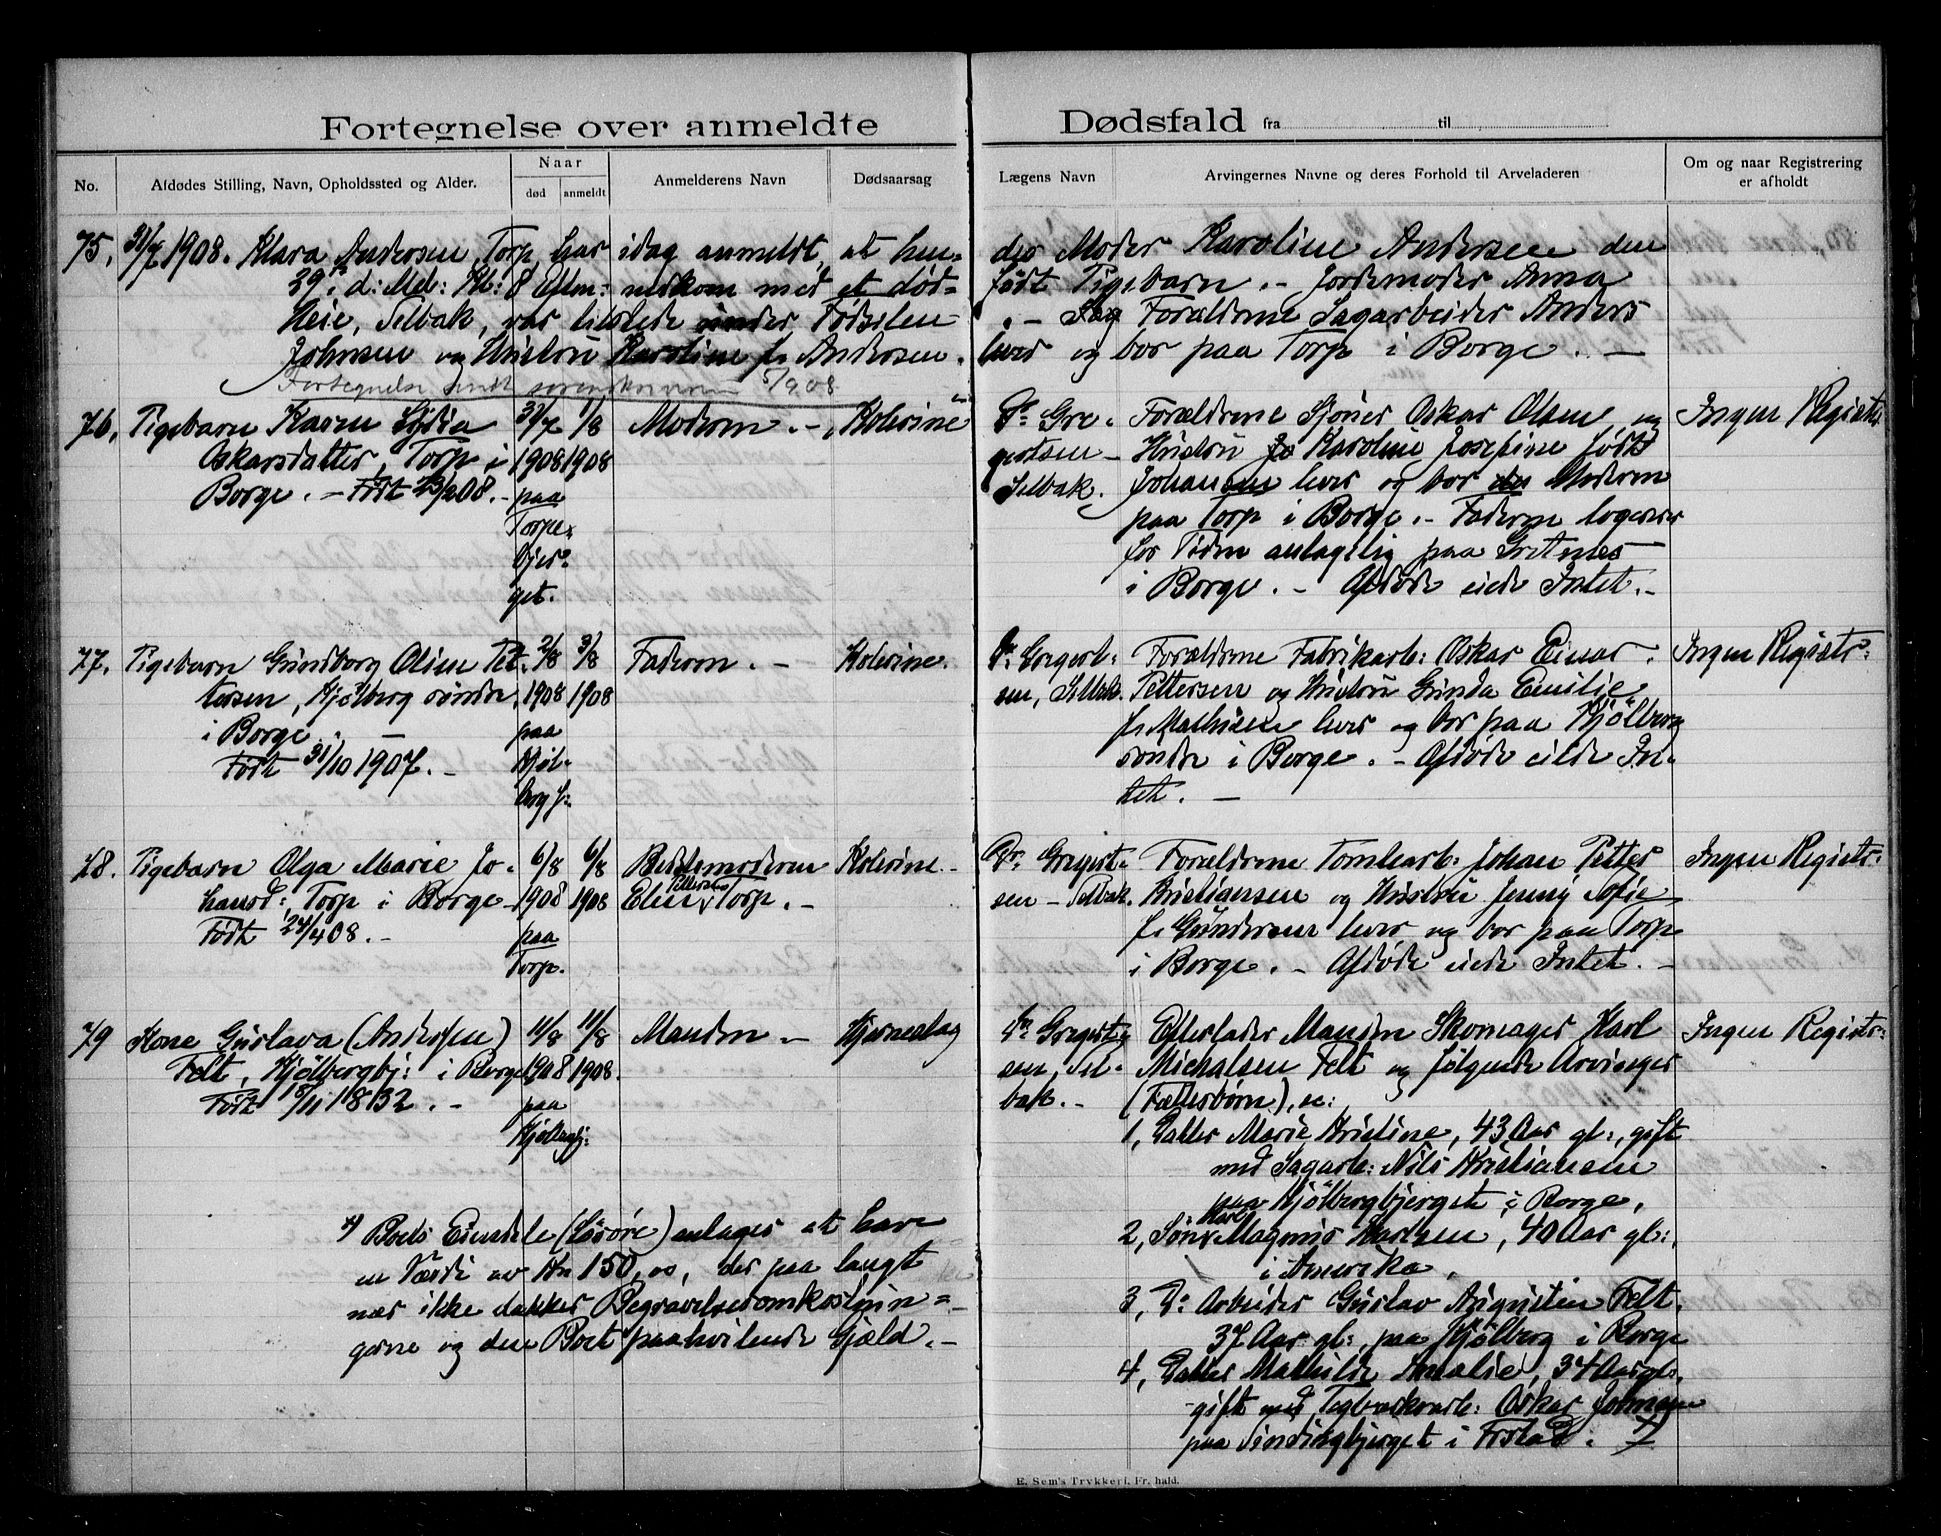 Fortegnelse over anmeldte Dødsfald fra til
No.
Afdødes Stilling, Navn, Opholdssted og Alder.
Naar
død
anmeldt
Anmelderens Navn
Dødsaarsag
Lægens Navn
Arvingernes Navne og deres Forhold til Arveladeren
Om og naar Registrering
er afholdt
75. 31/7 1908. Klara Andersen, Torp, har idag anmeldt, at hen-
des Moder Karoline Andersen den
29. d: Md: Kl: 8 Eftm: nedkom med et død-
født Pigebarn. - Jordemoder Anna
Heie, Selbak, var tilstede under Fødselen
. - Forældrene Sagarbeider Anders
Johnsen og Hustru Karoline f. Andersen.
lever og bor paa Torp i Borge. -
Fortegnelse sendt sorenskriveren 5/9 08.
76. Pigebarn Karen Lydia
Oskarsdatter, Torp i
Borge. - Født 23/2 08. -
31/7
1908
paa
Torpe-
bjer-
get.
1/8
1908
Moderen. -
Kolerine
Dr. Gre-
gertsen -
Selbak.
Forældrene Sjöner Oskar Olsen og
Hustru Karoline Josefine født
Johansen lever og bor Moderen
paa Torp i Borge. - Faderen logerer
for Tiden antagelig paa Gretnes
i Borge. - Afdøde eiede Intet. -
Ingen Registr:
77. Pigebarn Gundborg Oline Pet-
tersen, Kjölberg söndre
i Borge. -
Født 31/10 1907. -
2/8
1908
paa
Kjöl-
berg s:
3/8
1908
Faderen. -
Kolerine.
Dr. Gregert-
sen, Selbak.
Forældrene Fabrikarb: Oskar Einar
Pettersen og Hustru Gunda Emilie
f. Mathisen lever og bor paa Kjölberg
søndre i Borge. - Afdøde eiede In-
tet. -
Ingen Registr:
78. Pigebarn Olga Marie Jo-
hansd: Torp i Borge -
Født 24/4 08. -
6/8
1908
paa
Torp.
6/8
1908
Bedstemoderen
Elen Pettersen Torp. -
Kolerine. -
Dr. Gregert-
sen - Selbak.
Forældrene Tomtearb: Johan Petter
Kristiansen og Hustru Jenny Sofie
f. Gundersen lever og bor paa Torp
i Borge. - Afdøde eiede Intet. -
Ingen Registr:
79 Kone Gustava (Andersen)
Felt, Kjölbergbj: i Borge
Født /11 1832. -
11/8
1908
paa
Kjölbergbj:
11/8
1908.
Manden -
Hjerneslag
Dr. Gregert-
sen, Sel-
bak. -
Efterlader Manden Skomager Karl
Michalsen Felt og følgende Arvinger
(Fællesbørn), se:
1, Datter Marie Kristine, 43 Aar gl:, gift
med Sagarb: Nils Kristiansen
paa Kjölbergbjerget i Borge,
2, Sön Karl Magnus Karlsen, 40 Aar gl:,
i Amerika,
3, Do Arbeider Gustav Augustin Felt,
37 Aar gl:, paa Kjölberg i Borge
4, Datter Mathilde Amalie, 34 Aar gl:
gift med Teglverksarb: Oskar Johnsen
paa Sindingbjerget i Frstad. -
Ingen Registr:
Boets Eiendele (Løsøre) antages at have
en Værdi av Kr 150,00, der paa langt
nær ikke dækker Begravelsesomkostnin-
gerne og den Boet paahvilende Gjæld. -
E. Sem's Trykkeri, Fr. hald.